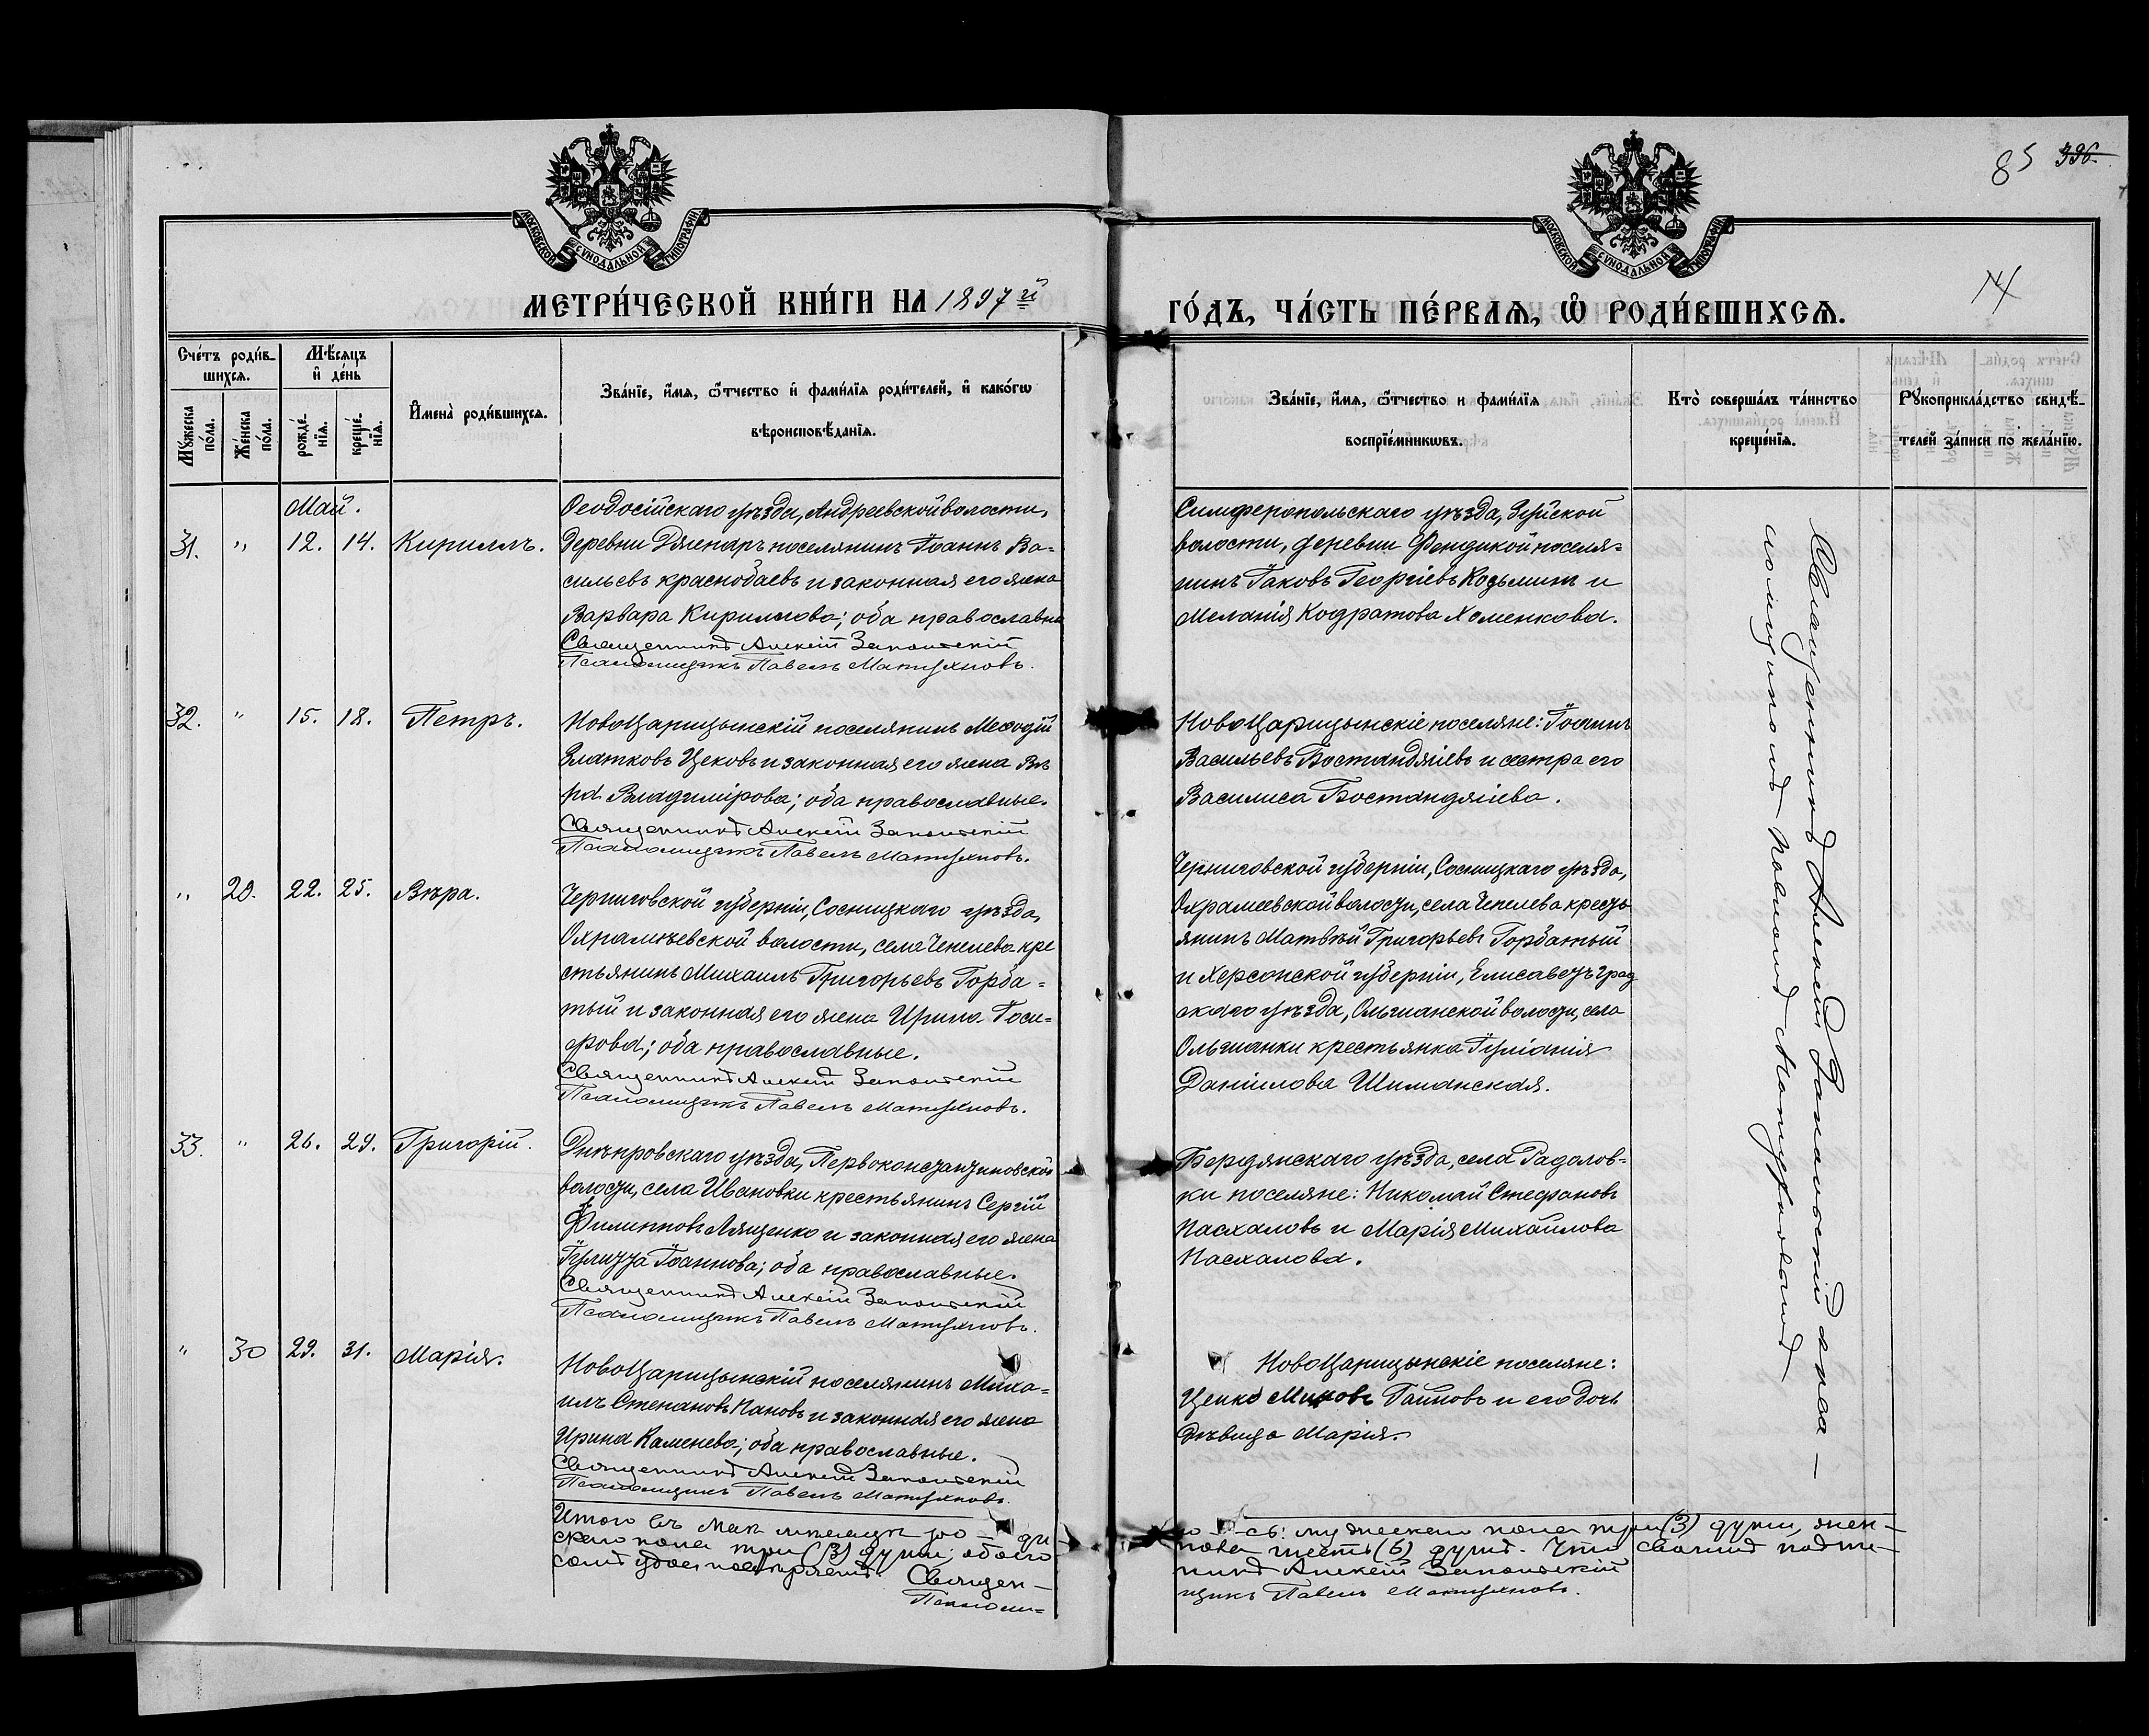 85 336.
МОСКОВСКОЙ СѴНОДАЛЬНОЙ ТИПОГРАФІИ
МОСКОВСКОЙ СѴНОДАЛЬНОЙ ТИПОГРАФІИ
МЕТРИ́ЧЕСКОЙ КНИ́ГИ НА 1897 й
ГО́ДЪ, ЧА́СТЬ ПЕ́РВАЯ, Ѿ РОДИ́ВШИХСЯ.
Сче́тъ роди́в-
шихся.
Мѣ́сяцъ
и҆ де́нь
Мꙋ́жеска
по́ла.
Же́нска
по́ла.
рожде́-
нїя.
креще́-
нїя.
И҆мена̀ роди́вшихся.
Зва́нїе, и҆́мя, ѻ҆́тчество и҆ фами́лїя роди́телей, и҆ како́гѡ
вѣроисповѣ́данїя.
Зва́нїе, и҆́мя, ѻ҆́тчество и фами́лїя
воспрїе́мникѡвъ.
Кто̀ соверша́лъ та́инство
креще́нїя.
Рꙋкоприкла́дство свидѣ́-
телей за́писи по жела́нїю.
Май.
31. " 12. 14. Кириллъ.
Ѳеодосійскаго уѣзда, Андреевской волости,
деревни Джепаръ поселянинъ Іоаннъ Ва-
сильевъ Краснобаевъ и законная его жена
Варвара Кириллова; оба православные
Священникъ Алексій Запольскій
Псаломщикъ Павелъ Матухновъ.
Симферопольскаго уѣзда, Зуйской
волости, деревни Фендикой поселя-
нинъ Іаковъ Георгіевъ Кодьминъ и
Меланія Кодратова Хоменкова.
32. " 15. 18. Петръ.
НовоЦарицынскій поселянинъ Меѳодій
Златковъ Цековъ и законная его жена Вѣ
ра Владимірова; оба православные.
Священникъ Алексій Запольскій
Псаломщикъ Павелъ Матухновъ.
НовоЦарицынскіе поселяне: Іоаннъ
Васильевъ Бостанджіевъ и сестра его
Василиса Бостанджіева.
" 20. 22. 25. Вѣра.
Черниговской губерніи, Сосницкаго уѣзда,
Охрамѣевской волости, села Чепелева кре
стьянинъ Михаилъ Григорьевъ Горба-
тый и законная его жена Ирина Іоси-
фова; оба православные.
Священникъ Алексій Запольскій
Псаломщикъ Павелъ Матухновъ.
Черниговской губерніи, Сосницкаго уѣзда,
Охрамеевской волости, села Чепелева кресть
янинъ Матвѣй Григорьевъ Горбатый
и Херсонской губерніи, Елисаветъград
скаго уѣзда, Ольшанской волости, села
Ольшанки крестьянка Іуліанія
Даніилова Шиманская.
33. " 26. 29. Григорій.
Днѣпровскаго уѣзда, Первоконстантиновской
волости, села Ивановки крестьянинъ Сергій
Филипповъ Лященко и законная его жена
Іулитта Іоаннова; оба православные.
Священникъ Алексій Запольскій
Псаломщикъ Павелъ Матухновъ.
Бердянскаго уѣзда, села Радолов-
ки поселяне: Николай Стефановъ
Пасхаловъ и Марія Михайлова
Пасхалова.
" 30 29. 31. Марія.
НовоЦарицынскій поселянинъ Миха-
илъ Степановъ Пановъ и законная его жена
Ирина Каменева; оба православные.
Священникъ Алексій Запольскій
Псаломщикъ Павелъ Матухновъ.
НовоЦарицынскіе поселяне:
Ценко Миховъ Гайновъ и его дочь
дѣвица Марія.
Священникъ Алексій Запольскій съ пса-
ломщикомъ Павломъ Матухновымъ
Итого въ Маѣ мѣсяцѣ ро - ди
ло - сь: мужескаго пола три (3) души, жен-
скаго пола три (3) души; обоего
пола шесть (6) душъ. Что своимъ подпи-
самъ удостовѣряемъ. Священ-
никъ Алексій Запольскій
Псаломщ-
щикъ Павелъ Матухновъ.